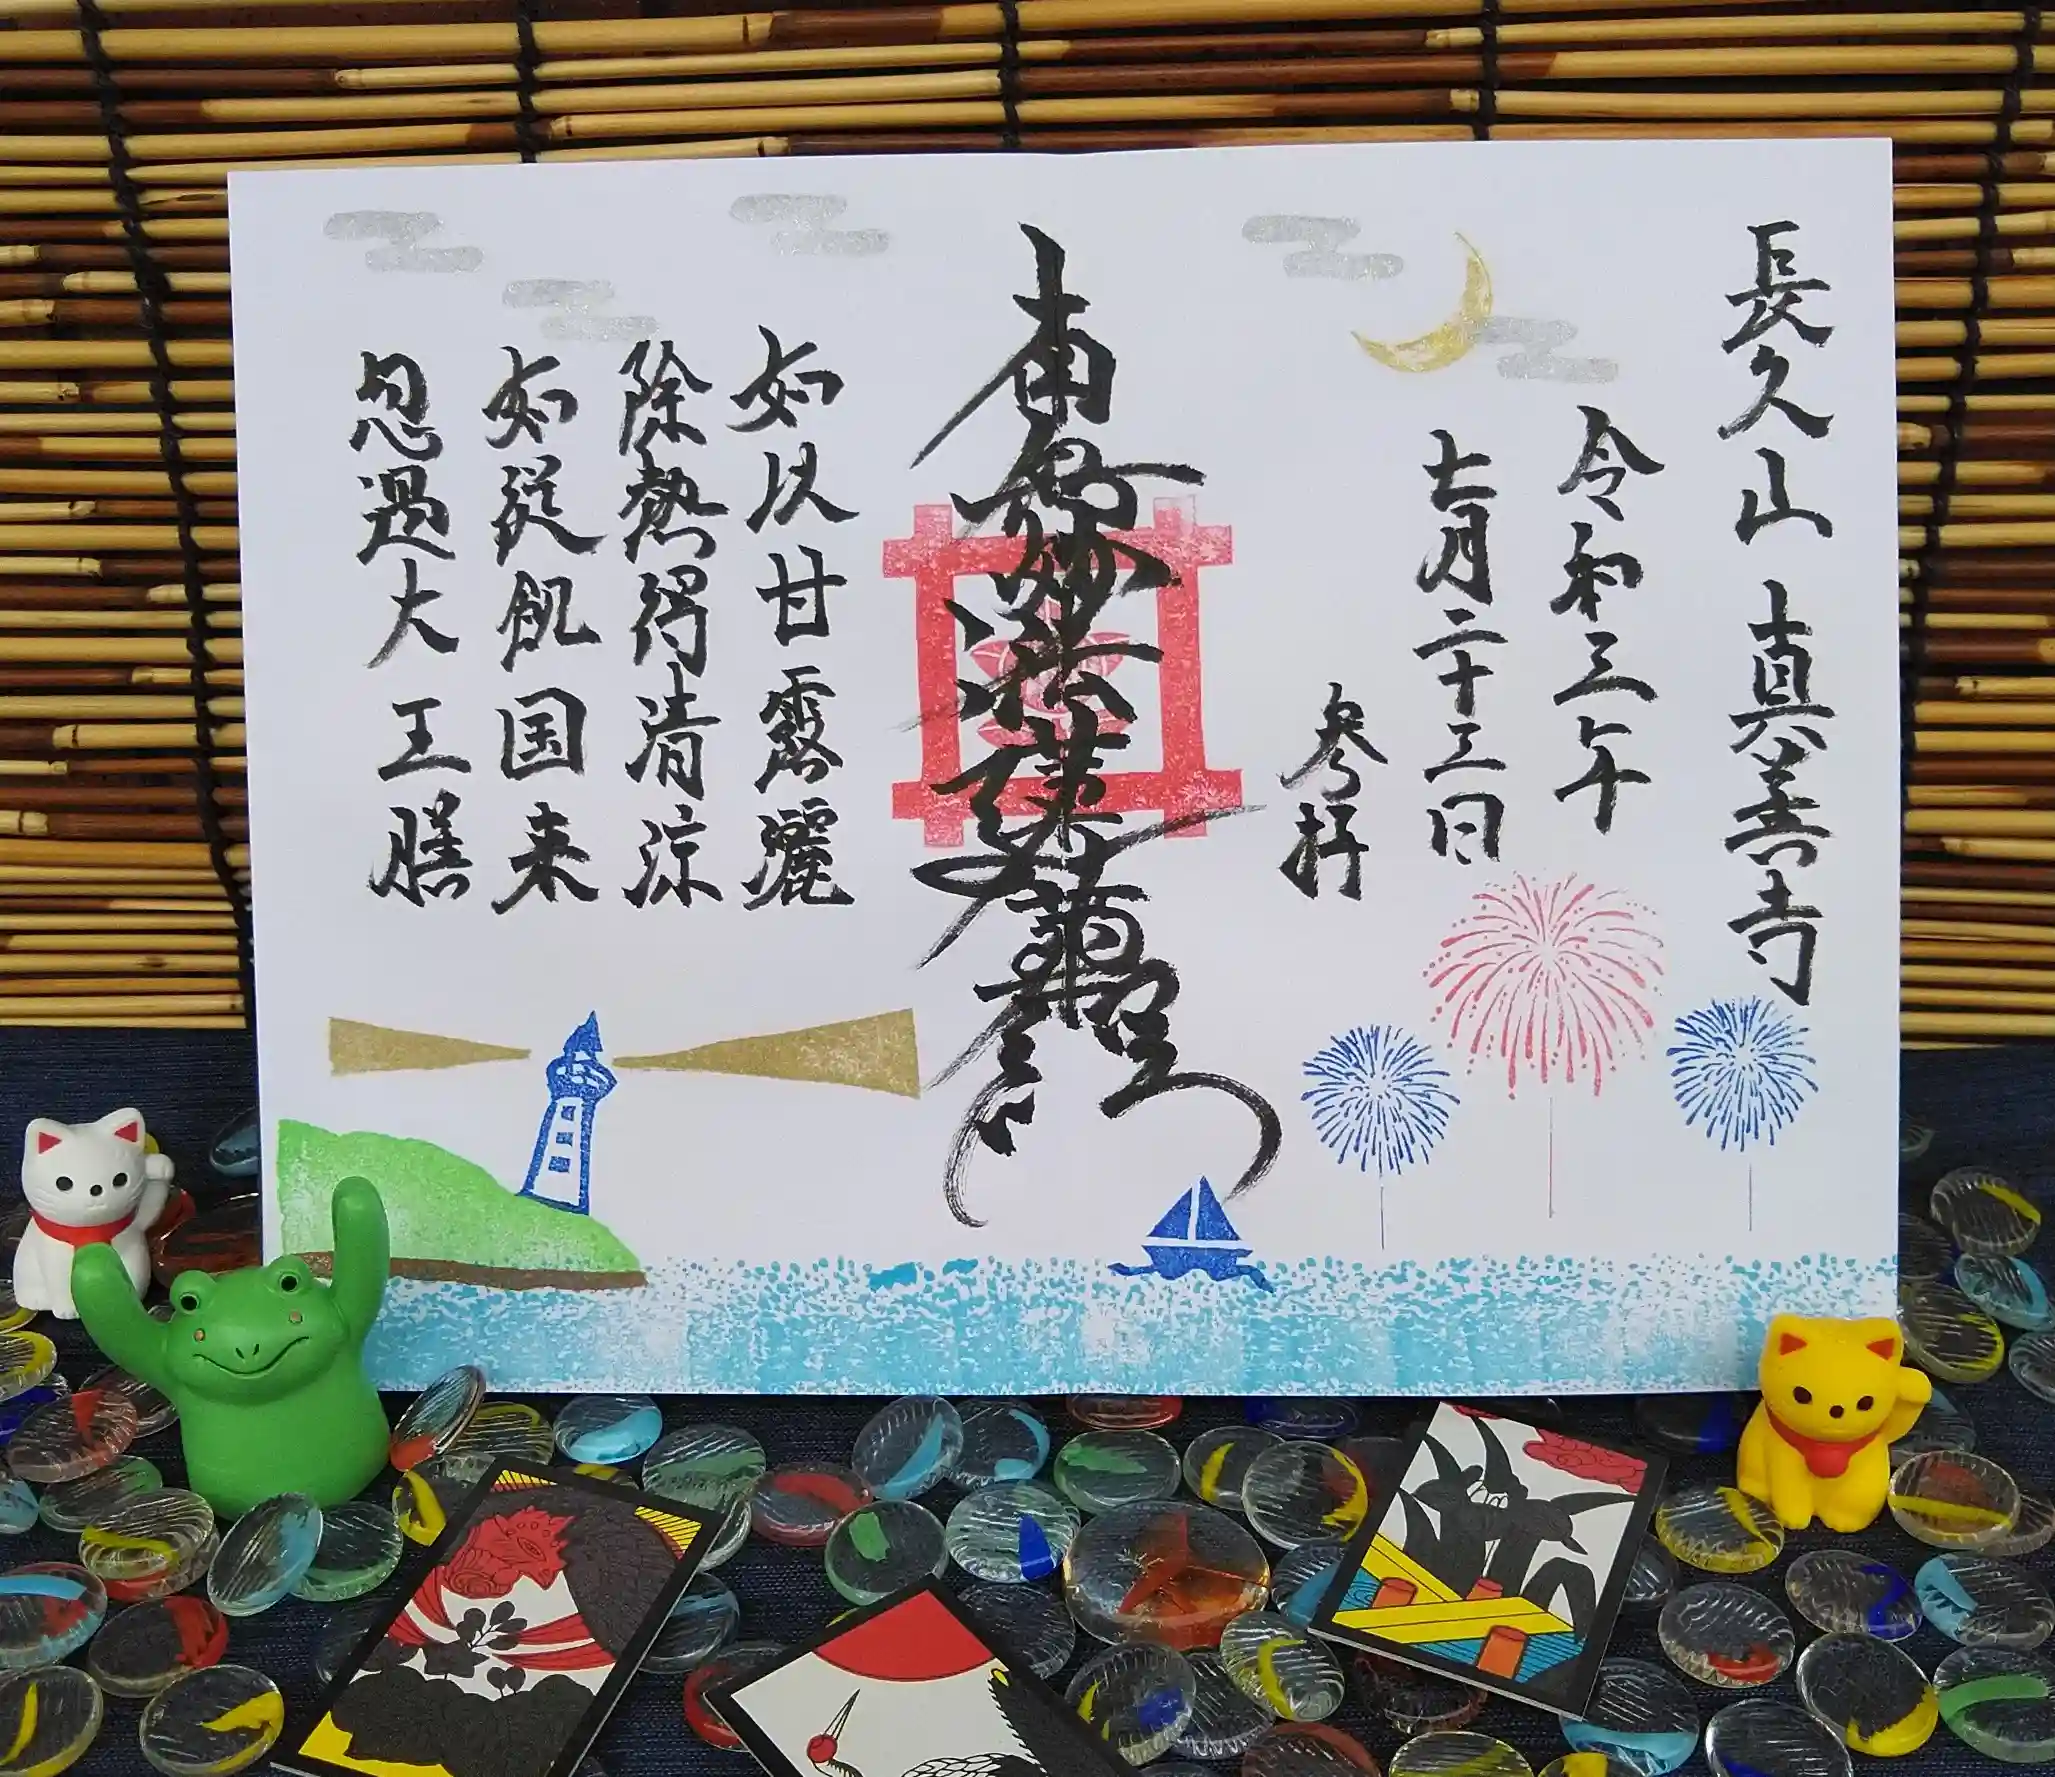 長久山 真善寺
令和三年
七月二十三日
参拝
南無妙法蓮華経
如以甘露灑
除熱得清涼
如従飢国来
忽遇大王膳